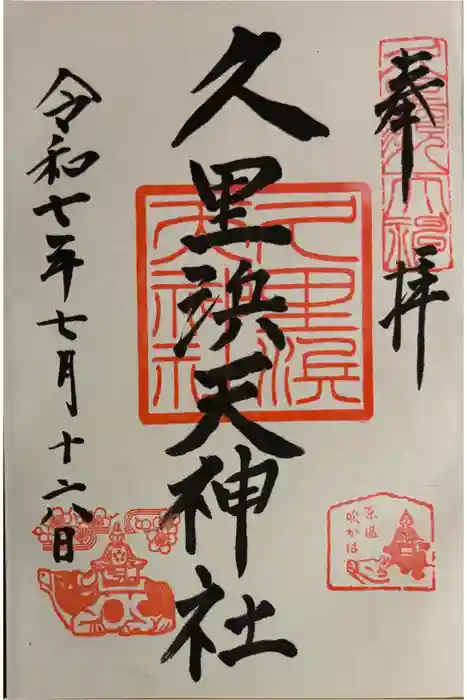 奉拝
久里浜天神社
令和七年七月十六日
久里浜天神社
東風吹かば